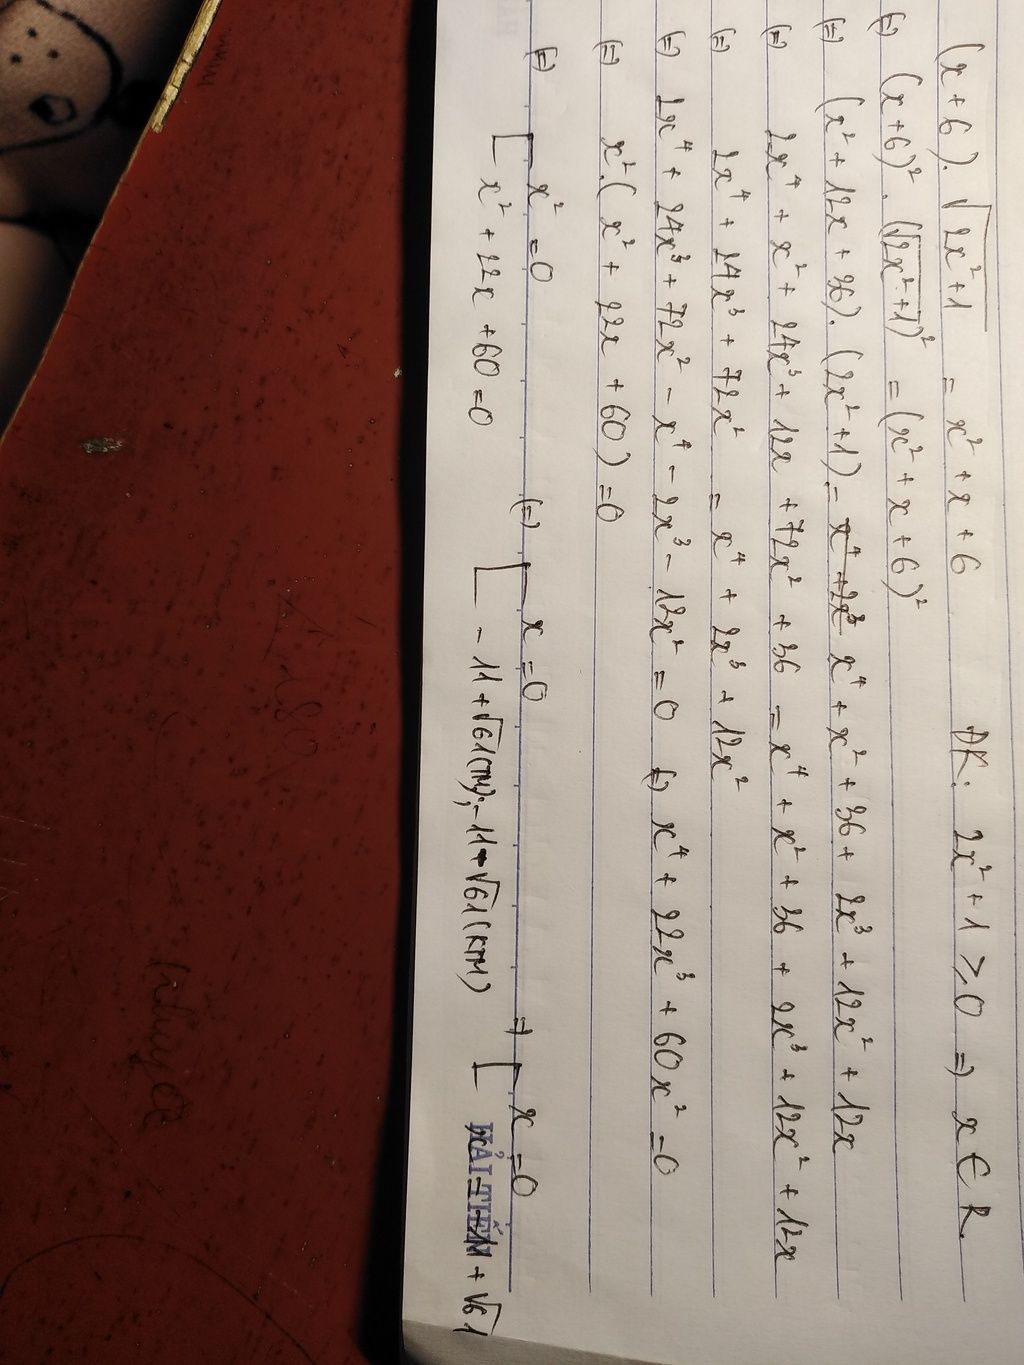 (x+6).√(2x²+1) = x²+x+6 ĐK: 2x²+1 ≥ 0 ⇒ x ∈ R.
(=) (x+6)².(√(2x²+1))² = (x²+x+6)²
(=) (x²+12x+36).(2x²+1) = x⁴+2x³ x⁴+x²+36+2x³+12x²+12x
(=) 2x⁴+x²+24x³+12x+72x²+36 = x⁴+x²+36+2x³+12x²+12x
(=) 2x⁴+24x³+72x² = x⁴+2x³+12x²
(=) 2x⁴+24x³+72x²-x⁴-2x³-12x²=0 (=) x⁴+22x³+60x²=0
(=) x².(x²+22x+60)=0
(=) [ x²=0 (=) [ x=0 ⇒ [ x=0
x²+22x+60=0 -11+√61(TM); -11-√61(KTM) x=-11+√61
HẢI TIẾN